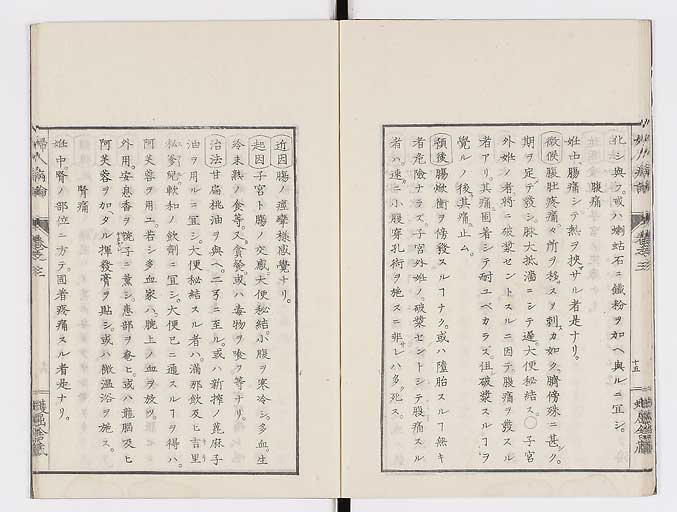 化シ與フ。或ハ蝲蛄石ニ鐵粉ヲ加ヘ與ルニ冝シ。
腹痛
妊中、腸痛シテ熱ヲ挾ザル者是ナリ。
徴候 腹肚疼痛々所ヲ移ス。刺カ如ク、臍傍殊ニ甚ク。
期ヲ定テ發シ。脉大抵濡ニシテ遅。大便秘結ス。○子宮
外妊ノ者將ニ破漿セントスルニ因テ腹痛ヲ發スル
者アリ。其痛固着シテ耐ユベカラズ。但破漿スルヿヲ
覺ルノ後。其痛止ム。
預後 腸焮衝ヲ傍發スルヿナク。或ハ墮胎スルヿ無キ
者危險ナラズ。子宮外妊ノ。破漿セントシテ腹痛スル
者ハ。速ニ小腹穿孔術ヲ施スニ非レハ多ク死ス。
十五
近因 腸ノ痙攣様感覺ナリ。
起因 子宮ト腸ノ交感。大便秘結。小腹ヲ寒冷シ。多血。生
冷未熟ノ食等。又貪餐。或ハ毒物ヲ喰フ等ナリ。
治法 甘扁桃油ヲ與ヘ。二弓ニ至ル。或ハ新搾ノ蓖麻子
油ヲ用ルニ冝シ。大便秘結スル者ハ。満那飲及ヒ吉里
私劉兒軟和ノ飲劑ニ冝シ。大便已ニ通スルヿヲ得ハ。
阿芙蓉ヲ用ユ。若シ多血家ハ。腕上ノ血ヲ放ツ。
外用。安息香ヲ院子ニ薫シ。患部ヲ卷ヒ。或ハ龍腦及ヒ
阿芙蓉ヲ加タル揮發膏ヲ貼シ。或ハ微温浴ヲ施ス。
腎痛
妊中。腎ノ部位ニ方テ。固着疼痛スル者是ナリ。
婦人病論
卷之三